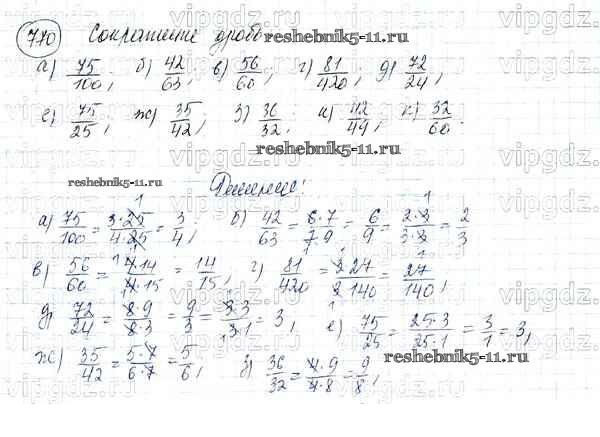 770 Сокращение дроб reshebnik5-11.ru
а) 75/100, б) 42/63, в) 56/60, г) 81/420, д) 72/24,
е) 75/25, ж) 35/42, з) 36/32, и) 42/49, к) 32/60.
reshebnik5-11.ru
reshebnik5-11.ru Решение:
а) 75/100 = 3·25/4·25 = 3/4, б) 42/63 = 6·7/7·9 = 6/9 = 2·3/3·3 = 2/3
в) 56/60 = 4·14/4·15 = 14/15, г) 81/420 = 3·27/3·140 = 27/140,
д) 72/24 = 8·9/8·3 = 9/3 = 3·3/3·1 = 3, е) 75/25 = 25·3/25·1 = 3/1 = 3,
ж) 35/42 = 5·7/6·7 = 5/6, з) 36/32 = 4·9/4·8 = 9/8, reshebnik5-11.ru
vipgdz.ru